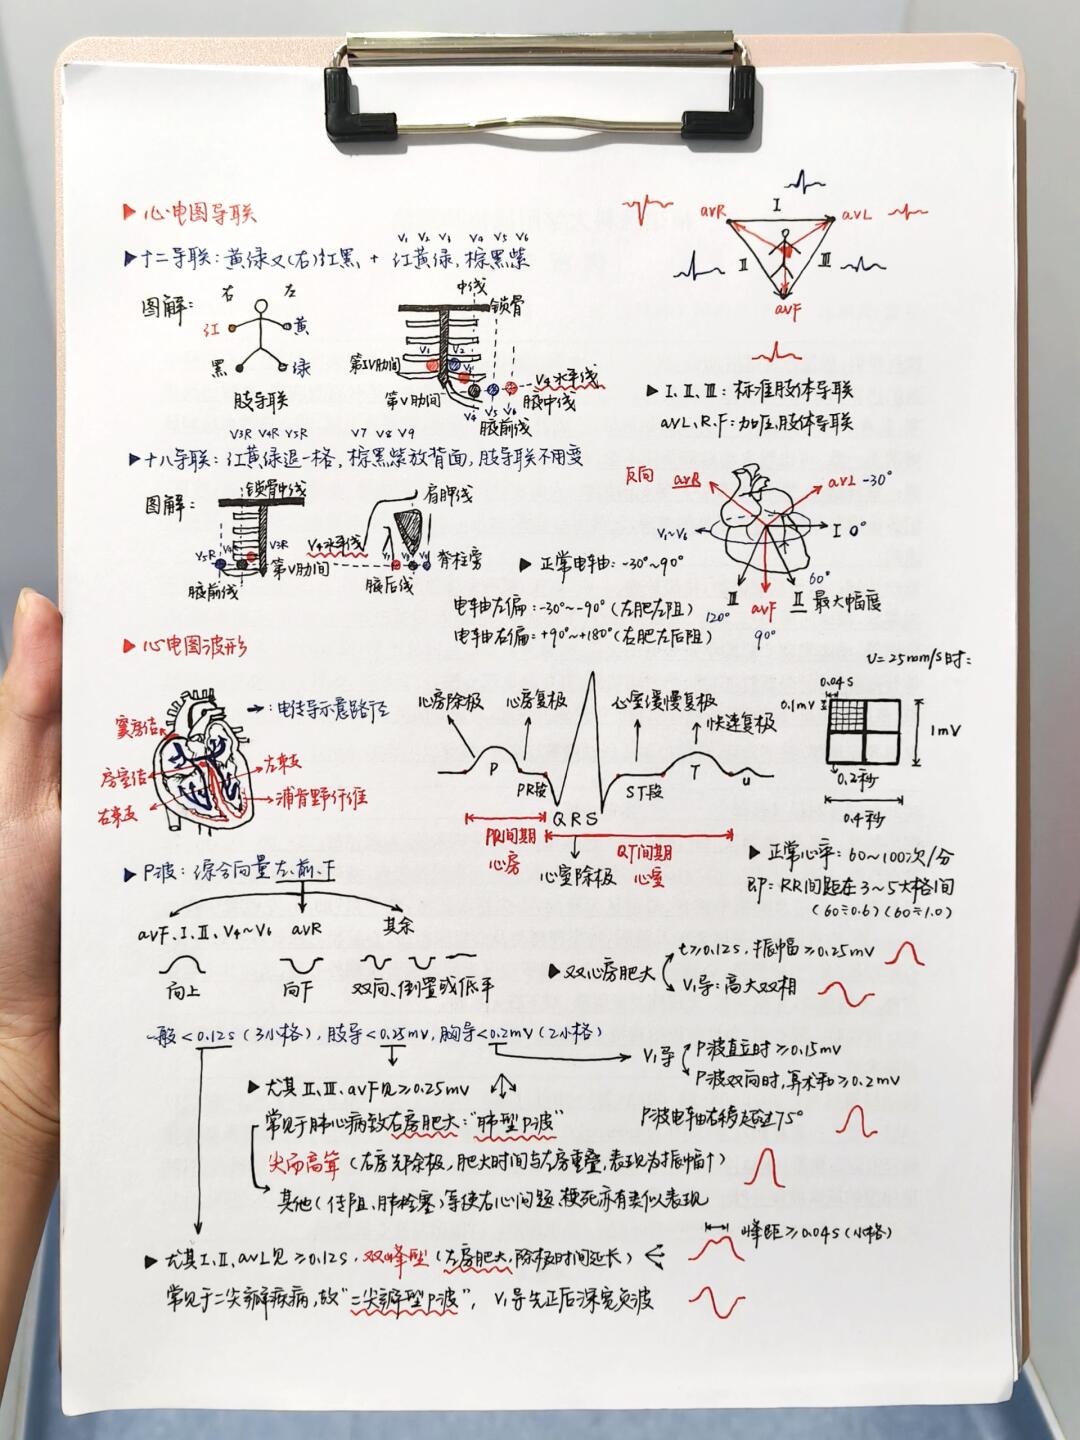 ▶心电图导联
V1 V2 V3 V4 V5 V6
▶十二导联：黄绿又(右)红黑 + 红黄绿，棕黑紫
图解：
右 左
红 黄
黑 绿
肢导联
中线
锁骨
第IV肋间
V1 V2
V3
第V肋间
V4水平线
V4 V5 V6
腋中线
腋前线
I
aVR aVL
II III
aVF
▶I、II、III：标准肢体导联
aVL、R、F：加压肢体导联
V3R V4R V5R V7 V8 V9
▶十八导联：红黄绿退一格，棕黑紫放背面，肢导联不用变
图解：
锁骨中线
V5R V4R V3R
第V肋间
腋前线
肩胛线
V4水平线
V7 V8 V9
脊柱旁
腋后线
反向 aVR
aVL -30°
V1~V6
I 0°
III
120°
aVF
90°
60°
II 最大幅度
▶正常电轴：-30°~90°
电轴左偏：-30°~-90°(左肥左阻)
电轴右偏：+90°~+180°(右肥左后阻)
▶心电图波形
→：电传导示意路径
窦房结
房室结
右束支
左束支
浦肯野纤维
心房除极
心房复极
心室缓慢复极
快速复极
P
PR段
Q R S
ST段
T
u
PR间期
心房
QT间期
心室
心室除极
V=25mm/s时：
0.04s
0.1mV
1mV
0.2秒
0.4秒
▶正常心率：60~100次/分
即：RR间距在3~5大格间
(60÷0.6)(60÷1.0)
▶P波：综合向量左、前、下
aVF、I、II、V4~V6 aVR 其余
向上 向下 双向、倒置或低平
▶双心房肥大
t≥0.12s，振幅≥0.25mV
V1导：高大双相
一般<0.12s(3小格)，肢导<0.25mV，胸导<0.2mV(2小格)
V1导
P波直立时≥0.15mV
P波双向时，算术和≥0.2mV
P波电轴右移超过75°
▶尤其II、III、aVF见≥0.25mV
常见于肺心病致右房肥大："肺型P波"
尖而高耸(右房先除极，肥大时间与左房重叠，表现为振幅↑)
其他(传阻、肺栓塞)等使右心问题、梗死亦有类似表现
▶尤其I、II、aVL见≥0.12s，双峰型(左房肥大，除极时间延长)
峰距≥0.04s(小格)
常见于二尖瓣疾病，故"二尖瓣型P波"，V1导先正后深宽负波